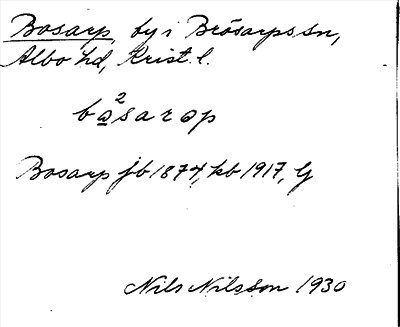 Bosarp, by i Brösarps sn,
Albo hd, Krist. l.
bo²sarəp
Bosarp jb 1874, kb 1917, G
Nils Nilsson 1930